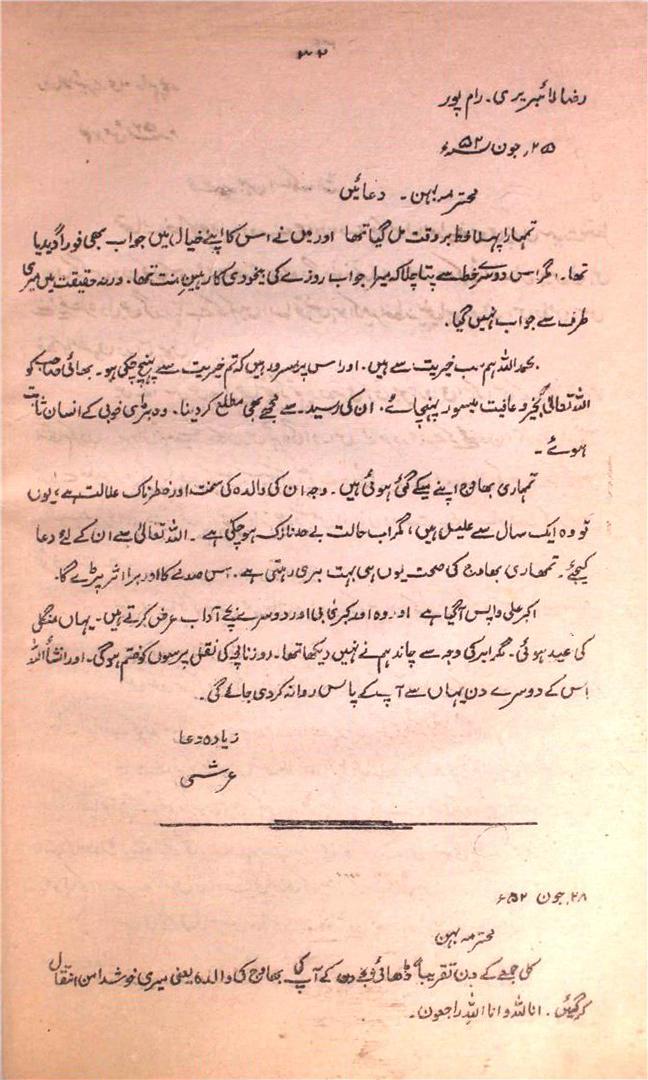 ۳۲
رضا لائبریری۔ رام پور
۲۵؍ جون ۵۲ء
محترمہ بہن۔ دعائیں
تمہارا پہلا خط بروقت مل گیا تھا اور میں نے اس کا اپنے خیال میں جواب بھی فوراً دیدیا
تھا۔ مگر اس دوسرے خط سے پتا چلا کہ میرا جواب روزے کی بیخودی کا رہینِ منت تھا۔ ورنہ حقیقت میں میری
طرف سے جواب نہیں گیا۔
بحمد اللہ ہم سب خیریت سے ہیں۔ اور اس پر مسرور ہیں کہ تم خیریت سے پہنچ چکی ہو۔ بھائی صاحب کو
اللہ تعالیٰ بخیر و عافیت میسور پہنچائے۔ ان کی رسید سے مجھے بھی مطلع کر دینا۔ وہ بڑی خوبی کے انسان ثابت
ہوئے۔
تمہاری بھاوج اپنے میکے گئی ہوئی ہیں۔ وجہ ان کی والدہ کی سخت اور خطرناک علالت ہے، یوں
تو وہ ایک سال سے علیل ہیں، مگر اب حالت بے حد نازک ہو چکی ہے۔ اللہ تعالیٰ سے ان کے لئے دعا
کیجئے۔ تمھاری بھاوج کی صحت یوں ہی بہت بری رہتی ہے۔ اس صدمے کا اور برا اثر پڑے گا۔
اکبر علی واپس آگیا ہے اور وہ اور کبریٰ بی اور دوسرے بچے آداب عرض کرتے ہیں۔ یہاں منگل
کی عید ہوئی۔ مگر ابر کی وجہ سے چاند ہم نے نہیں دیکھا تھا۔ روزنامچے کی نقل پرسوں کو ختم ہوگی۔ اور انشأ اللہ
اس کے دوسرے دن یہاں سے آپ کے پاس روانہ کر دی جائے گی۔
زیادہ دعا
عرشی
۲۸؍ جون ۵۲ء
محترمہ بہن
کل جمعے کے دن تقریباً ڈھائی بجے دن کے آپ کی بھاوج کی والدہ یعنی میری خوشدامن انتقال
کر گئیں۔ انا للہ و انا الیہ راجعون۔